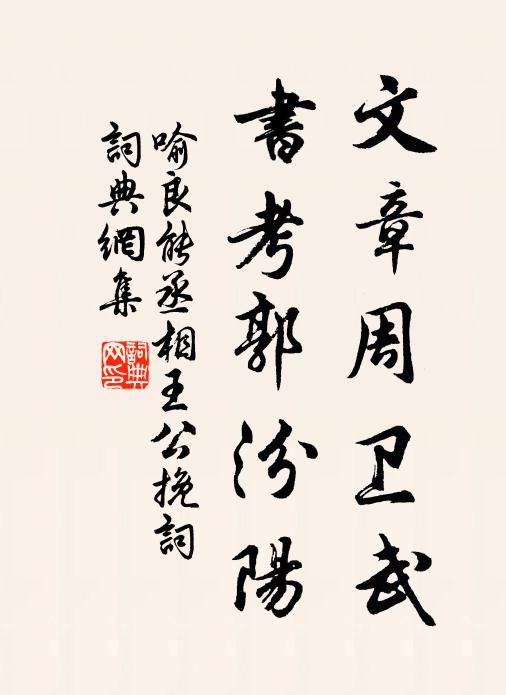 文章周卫武
書考郭汾陽
喻良能丞相王公挽詞
詞典網集
詞典網印